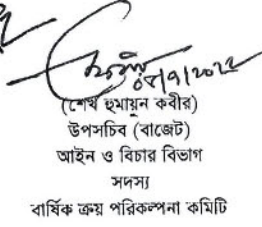 ০৫/৭/২০২২
(শেখ হুমায়ুন কবীর)
উপসচিব (বাজেট)
আইন ও বিচার বিভাগ
সদস্য
বার্ষিক ক্রয় পরিকল্পনা কমিটি